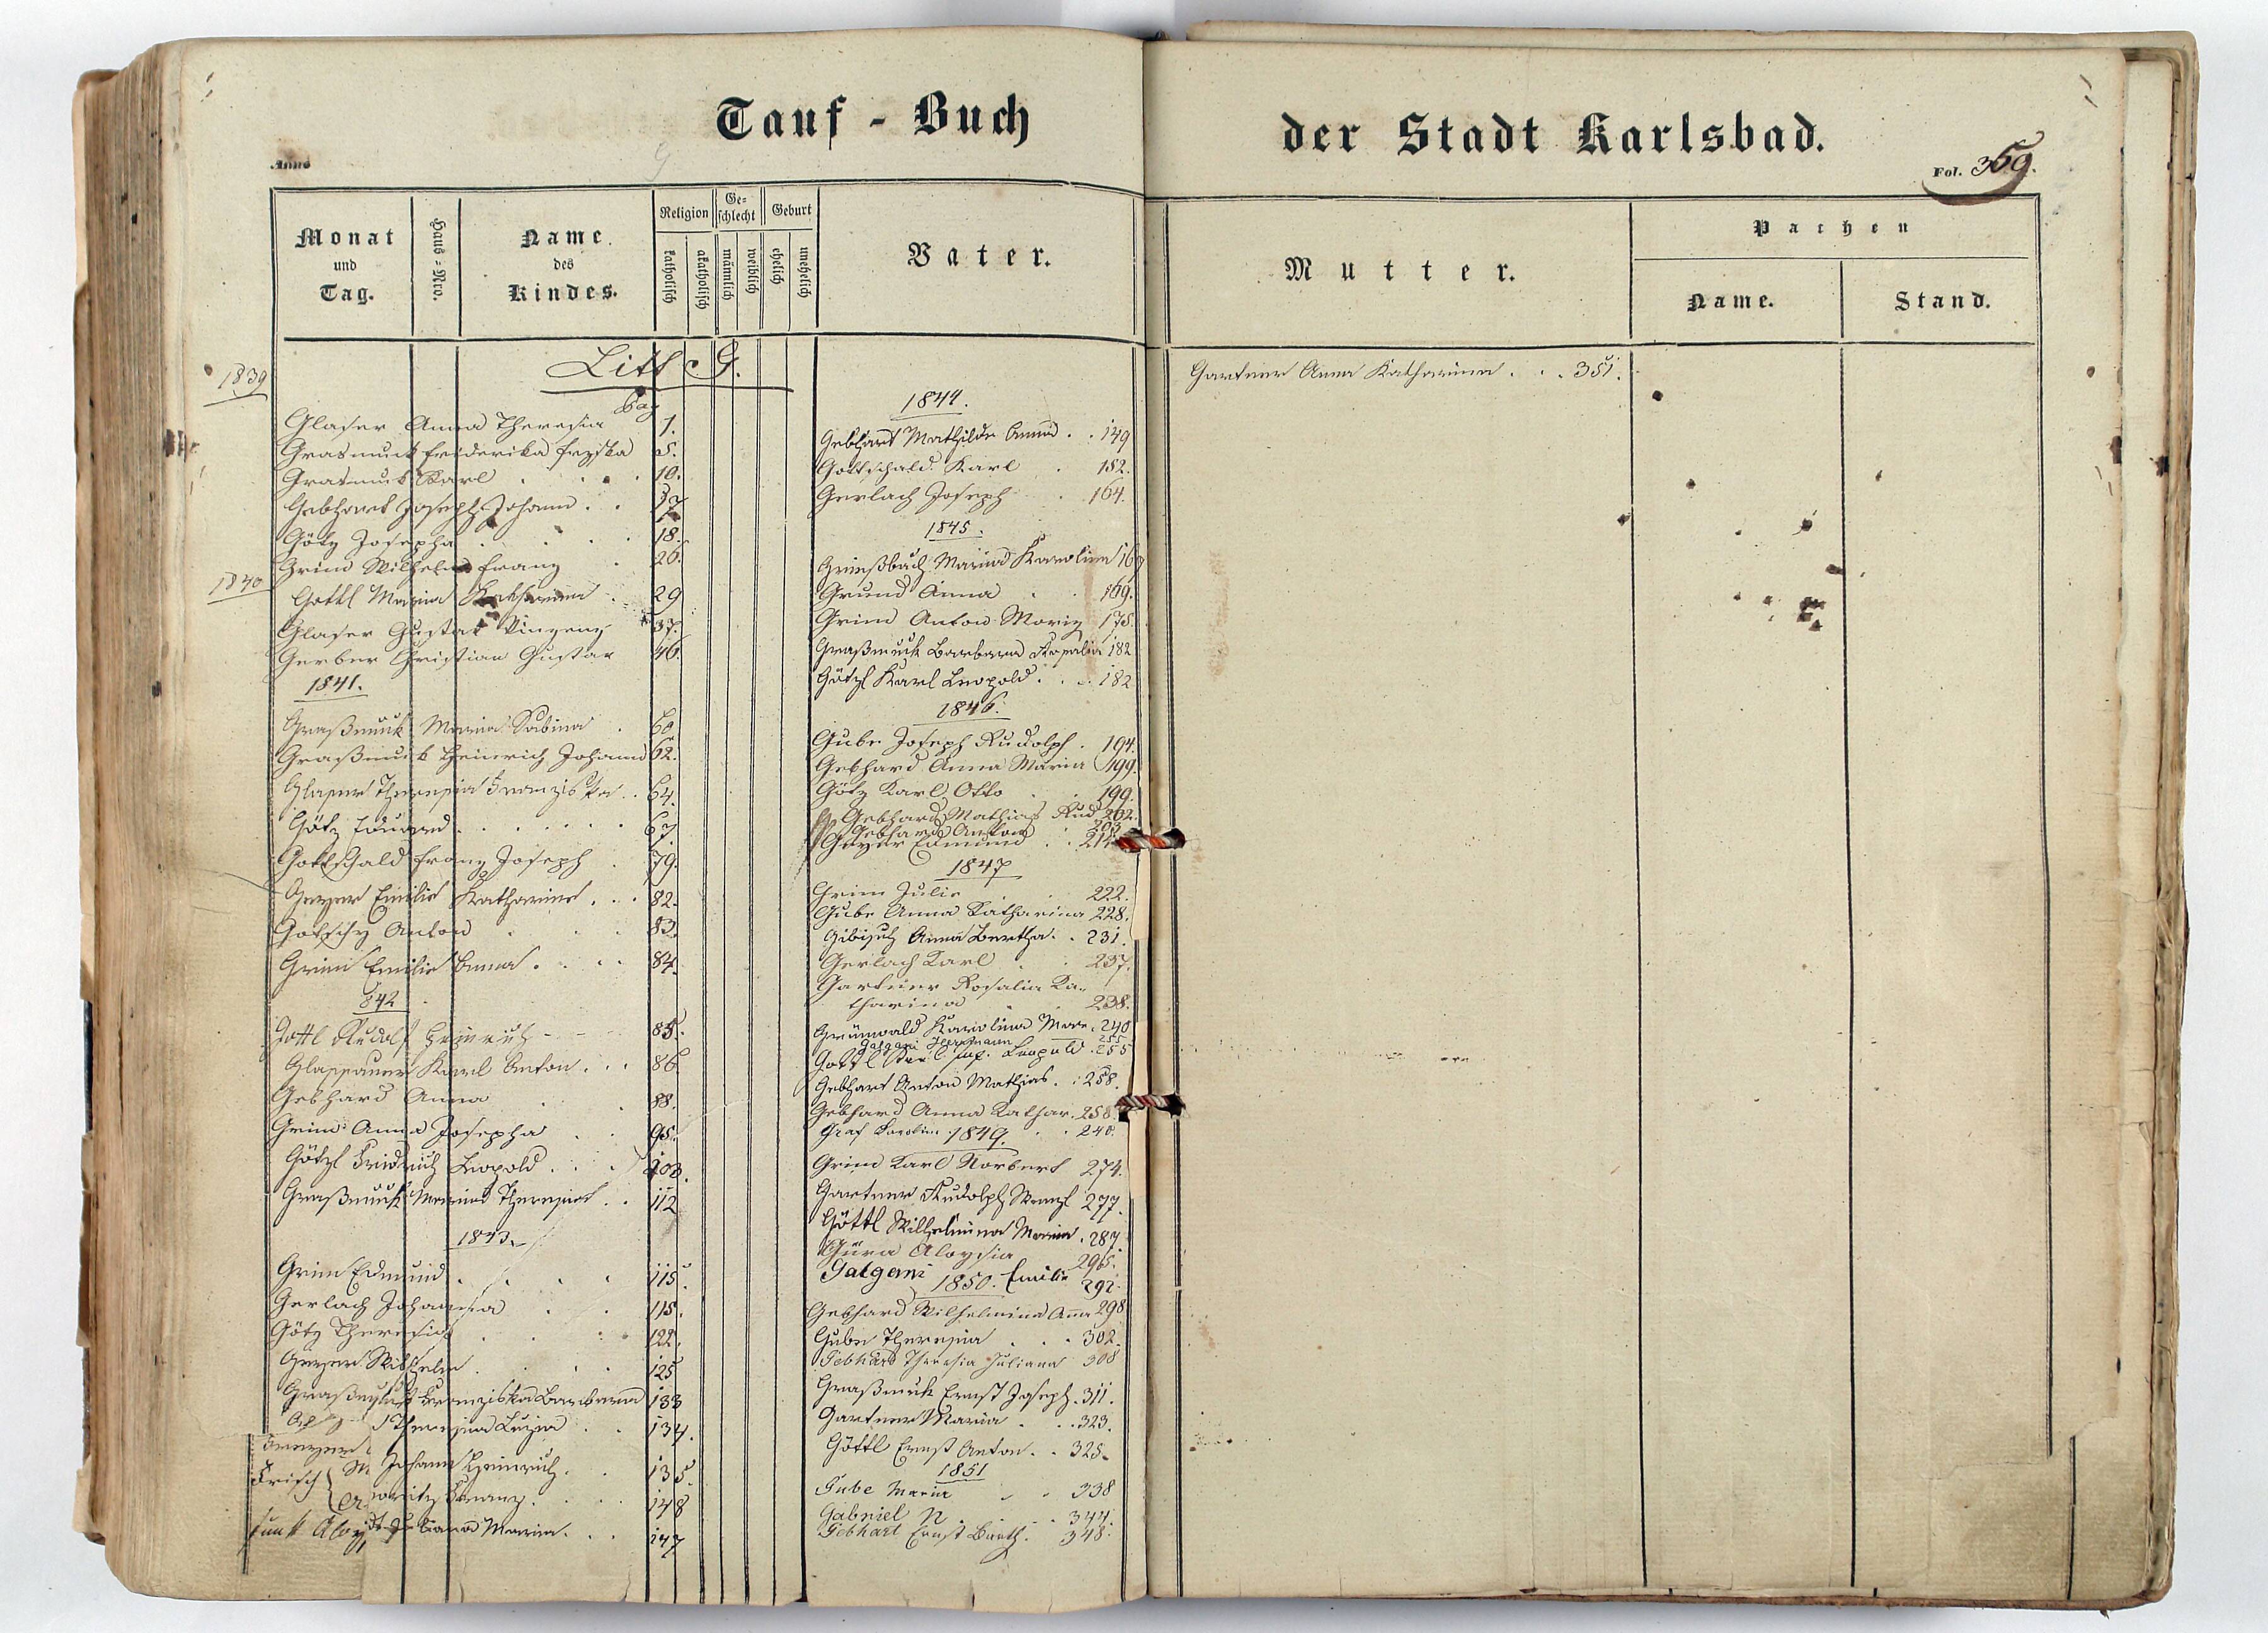 Tauf - Buch
der Stadt Karlsbad.
Anno
Fol. 369.
Monat und Tag.
Haus-Nro.
Name des Kindes.
Religion
katholisch
akatholisch
Geschlecht
männlich
weiblich
Geburt
ehelich
unehelich
Vater.
Mutter.
Pathen
Name.
Stand.
Litt. G.
1839
pag
Glaser Anna Theresia 1.
Grasmuck Friderika 5.
Grasmuk Karl 10.
Gebhart Joseph Johann 17
Götz Josepha 18.
Grim Wilhelm Franz 26.
1840
Gottl Maria Katharina 29
Glaser Gustav Vinzenz 37.
Gerber Christian Gustav 46.
1841.
Graßmuk Maria Sabina 60
Graßmuck Heinrich Johann 62.
Glaser Theresia Franziska 64.
Götz Eduard 67.
Gottschald Franz Joseph 79.
Geyer Emilie Katharina 82.
Gotschy Anton 83.
Grim Emilie Anna 84.
842
Gottl Rudolf Heinrich 85.
Glassauer Karl Anton 86.
Gebhard Anna 88.
Grim Anna Josepha 95.
Götzl Fridrich Leopold 103.
Graßmuck Maria Theresia 112
1843.
Grim Edmund 115.
Gerlach Johanna 115.
Götz Theresia 122.
Geyer Wilhelm 125
Graßmuck Franziska Barbara 133
Theresia Luzia 134.
Johann Heinrich 135.
Frisch
Moritz Franz 148
Maria 147
1844.
Gebhart Mathilde Anna 149
Gottschald Karl 152.
Gerlach Joseph 164.
1845.
Grießbach Maria Karolina 16
Grund Anna 169.
Grim Anton Moriz 178.
Graßmuck Barbara Rosalia 182
Götzl Karl Leopold 182
1846.
Gube Joseph Rudolph 194.
Gebhard Anna Maria 199.
Götz Karl Otto 199.
Gebhard Mathias Rud 202.
Gebhard Anton 203
Geyer Edmund 21
1847
Grim Julie 222.
Gube Anna Katharina 228.
Gibisch Anna Bertha 231.
Gerlach Karl 237.
Gartner Rosalia Ka-
tharina 238.
Grünwald Karolina Mar. 240
Galgani Herrmann 255
Gottl Karl Jos. Leopold 255
Gebhart Anton Mathias 258.
Gebhard Anna Kathar. 258
Graf Karolina 240.
1849.
Grim Karl Norbert 274.
Gartner Rudolph Wenzl 277.
Göttl Wilhelmina Maria 287.
Güra Aloysia 295.
Galgani Emilie 292.
1850.
Gebhard Wilhelmina Anna 298
Gube Theresia 302.
Gebhard Theresia Juliana 308
Graßmuck Ernst Joseph 311.
Gartner Maria 323.
Göttl Ernst Anton 325.
1851
Gube Maria 338
Gabriel N 344.
Gebhart Ernst Barth. 348.
Gartner Anna Katharina 351.